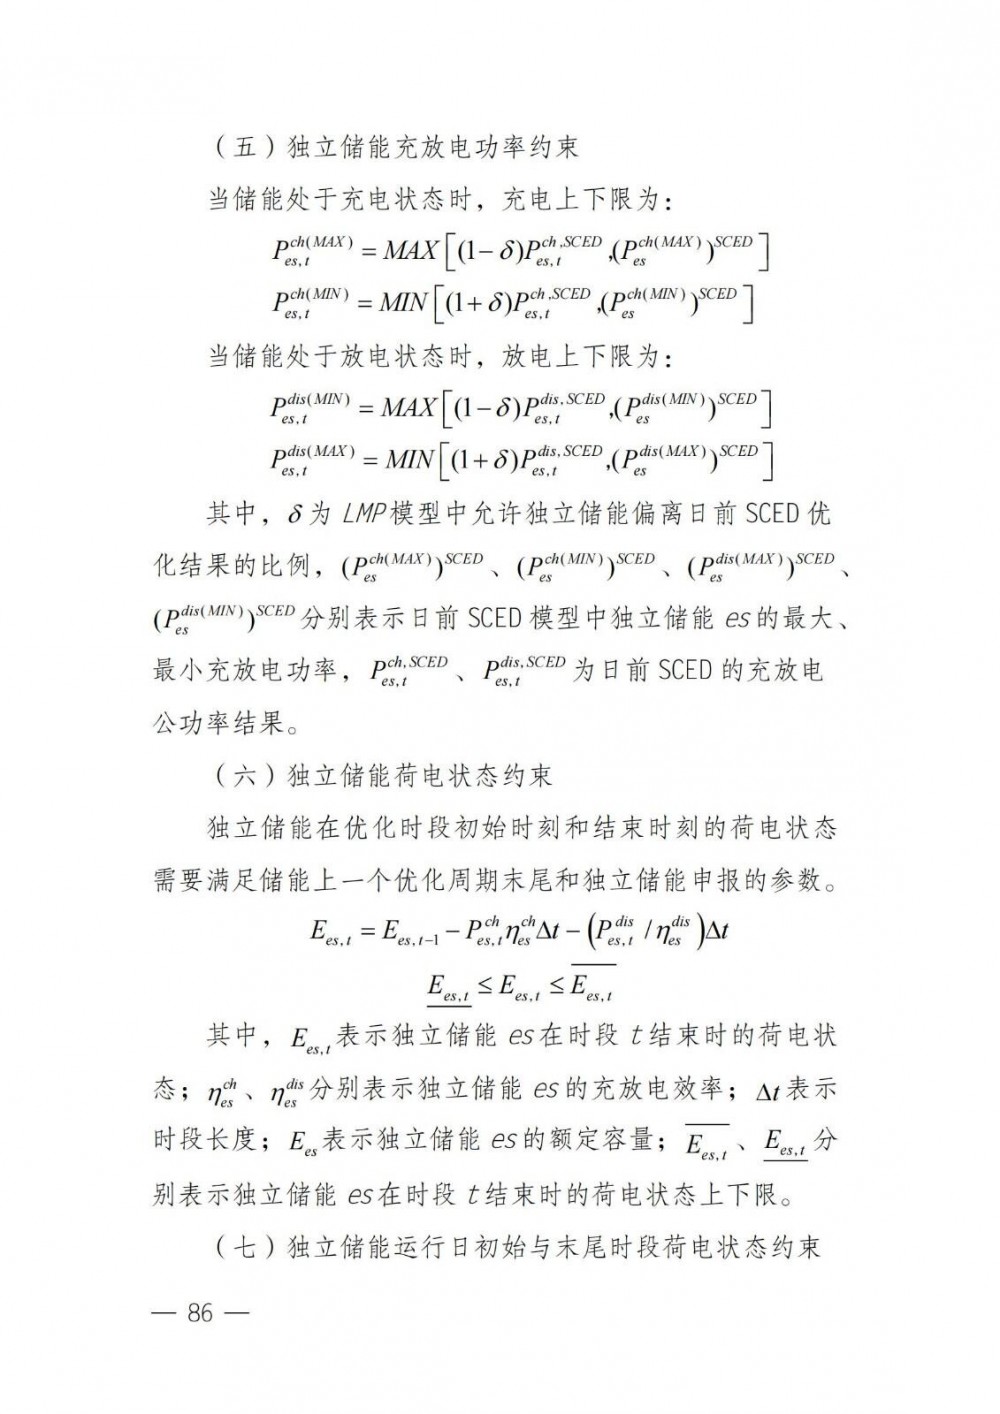 （五）独立储能充放电功率约束
当储能处于充电状态时，充电上下限为：
$P_{es,t}^{ch(MAX)} = MAX\left[(1-\delta)P_{es,t}^{ch,SCED},(P_{es}^{ch(MAX)})^{SCED}\right]$
$P_{es,t}^{ch(MIN)} = MIN\left[(1+\delta)P_{es,t}^{ch,SCED},(P_{es}^{ch(MIN)})^{SCED}\right]$
当储能处于放电状态时，放电上下限为：
$P_{es,t}^{dis(MIN)} = MAX\left[(1-\delta)P_{es,t}^{dis,SCED},(P_{es}^{dis(MIN)})^{SCED}\right]$
$P_{es,t}^{dis(MAX)} = MIN\left[(1+\delta)P_{es,t}^{dis,SCED},(P_{es}^{dis(MAX)})^{SCED}\right]$
其中，$\delta$ 为 LMP模型中允许独立储能偏离日前 SCED 优
化结果的比例，$(P_{es}^{ch(MAX)})^{SCED}$、$(P_{es}^{ch(MIN)})^{SCED}$、$(P_{es}^{dis(MAX)})^{SCED}$、
$(P_{es}^{dis(MIN)})^{SCED}$ 分别表示日前 SCED 模型中独立储能 es 的最大、
最小充放电功率，$P_{es,t}^{ch,SCED}$、$P_{es,t}^{dis,SCED}$ 为日前 SCED 的充放电
公功率结果。
（六）独立储能荷电状态约束
独立储能在优化时段初始时刻和结束时刻的荷电状态
需要满足储能上一个优化周期末尾和独立储能申报的参数。
$E_{es,t} = E_{es,t-1} - P_{es,t}^{ch}\eta_{es}^{ch}\Delta t - \left(P_{es,t}^{dis}/\eta_{es}^{dis}\right)\Delta t$
$\underline{E_{es,t}} \le E_{es,t} \le \overline{E_{es,t}}$
其中，$E_{es,t}$ 表示独立储能 es 在时段 t 结束时的荷电状
态；$\eta_{es}^{ch}$、$\eta_{es}^{dis}$ 分别表示独立储能 es 的充放电效率；$\Delta t$ 表示
时段长度；$E_{es}$ 表示独立储能 es 的额定容量；$\overline{E_{es,t}}$、$\underline{E_{es,t}}$ 分
别表示独立储能 es 在时段 t 结束时的荷电状态上下限。
（七）独立储能运行日初始与末尾时段荷电状态约束
— 86 —